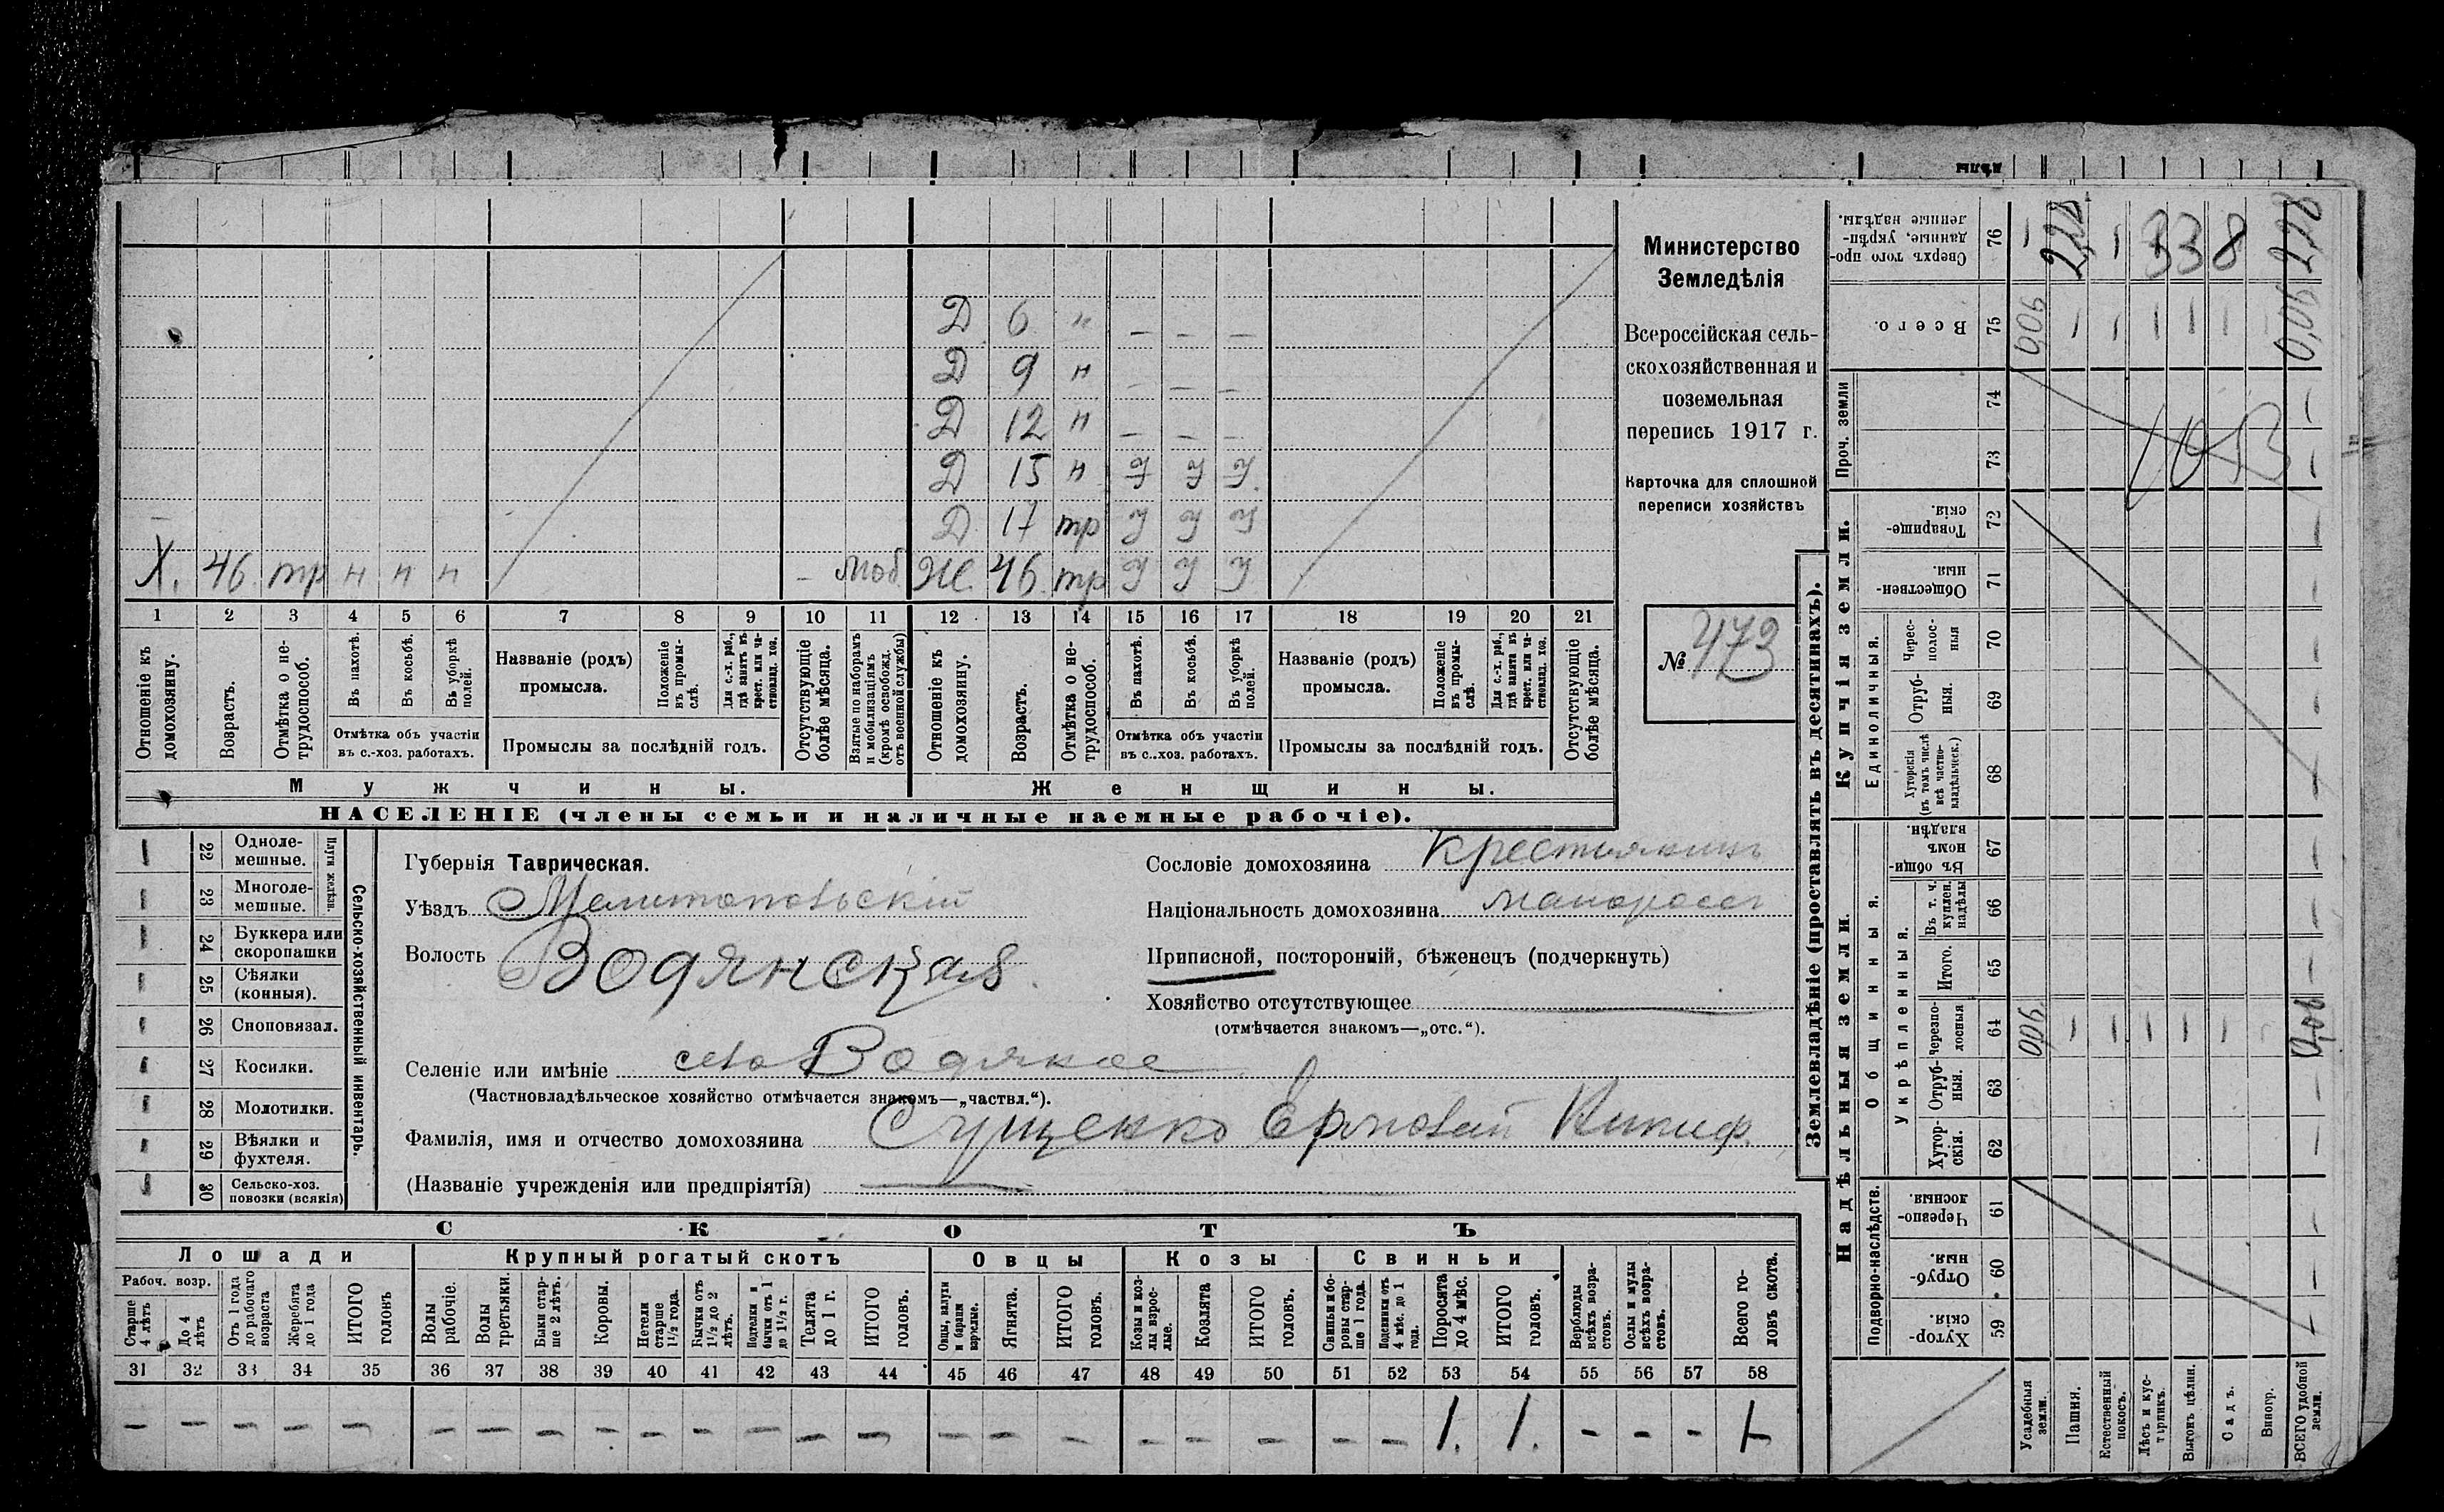 дѣлы
Д 6 „ – – –
Д 9 н – – –
Д 12 н – – –
Д 15 н У У У
Д 17 тр У У У
Х. 46 тр н н н – моб Ж. 46 тр У У У
1 2 3 4 5 6 7 8 9 10 11 12 13 14 15 16 17 18 19 20 21
Отношеніе къ домохозяину.
Возрастъ.
Отмѣтка о не-трудоспособ.
Въ пахотѣ.
Въ косьбѣ.
Въ уборкѣ полей.
Отмѣтка объ участіи
въ с.-хоз. работахъ.
Названіе (родъ)
промысла.
Положеніе въ промы-слѣ.
Для с.-х. раб., гдѣ занятъ въ крест. или ча-стновлад. хоз.
Промыслы за послѣдній годъ.
Отсутствующіе болѣе мѣсяца.
Взятые по наборамъ и мобилизаціямъ (кромѣ освобожд. отъ военной службы)
Отношеніе къ домохозяину.
Возрастъ.
Отмѣтка о не-трудоспособ.
Въ пахотѣ.
Въ косьбѣ.
Въ уборкѣ полей.
Отмѣтка объ участіи
въ с..хоз. работахъ.
Названіе (родъ)
промысла.
Положеніе въ промы-слѣ.
Для с.-х. раб., гдѣ занята въ крест. или ча-стновлад. хоз.
Промыслы за послѣдній годъ.
Отсутствующіе болѣе мѣсяца.
Мужчины. Женщины.
НАСЕЛЕНІЕ (члены семьи и наличные наемные рабочіе).
Министерство
Земледѣлія
Всероссійская сель-
скохозяйственная и
поземельная
перепись 1917 г.
Карточка для сплошной
переписи хозяйствъ
№ 473
22 Одноле-
мешные.
23 Многоле-
мешные.
Плуги желѣзн.
24 Буккера или
скоропашки
25 Сѣялки
(конныя).
26 Сноповязал.
27 Косилки.
28 Молотилки.
29 Вѣялки и
фухтеля.
30 Сельско-хоз.
повозки (всякія)
Сельско-хозяйственный инвентарь.
Губернія Таврическая.
Уѣздъ Мелитопольскій
Волость Водянская
Селеніе или имѣніе село Водяное
(Частновладѣльческое хозяйство отмѣчается знакомъ—„частвл.“).
Фамилія, имя и отчество домохозяина Сущенко Никиф.
(Названіе учрежденія или предпріятія)
Сословіе домохозяина Крестьянинъ
Національность домохозяина малороссъ
Приписной, посторонній, бѣженецъ (подчеркнуть)
Хозяйство отсутствующее
(отмѣчается знакомъ—„отс.“).
СКОТЪ
Лошади Крупный рогатый скотъ Овцы Козы Свиньи
Рабоч. возр.
Старше 4 лѣтъ
До 4 лѣтъ
Отъ 1 года до рабочаго возраста
Жеребята до 1 года
ИТОГО головъ
Волы рабочіе.
Волы третьяки.
Быки стар-ше 2 лѣтъ.
Коровы.
Нетели старше 1½ года.
Бычки отъ 1½ до 2 лѣтъ.
Подтелки и бычки отъ 1 до 1½ г.
Телята до 1 г.
ИТОГО головъ.
Овцы, валухи и бараны взрослые.
Ягнята.
ИТОГО головъ.
Козы и коз-лы взрос-лые.
Козлята
ИТОГО головъ.
Свиньи и бо-ровы стар-ше 1 года.
Подсвинки отъ 4 мѣс. до 1 года.
Поросята до 4 мѣс.
ИТОГО головъ.
Верблюды всѣхъ возра-стовъ.
Ослы и мулы всѣхъ возра-стовъ.
Всего го-ловъ скота.
31 32 33 34 35 36 37 38 39 40 41 42 43 44 45 46 47 48 49 50 51 52 53 54 55 56 57 58
– – – – – – – – – – – – – – – – – – – – – – 1. 1. – – – 1
Землевладѣніе (проставлять въ десятинахъ).
Купчія земли.
Надѣльныя земли.
Сверхъ того про-данные, укрѣп-ленные надѣлы. 76 2,28 338 2,28
Всего. 75 0,06 0,06
Проч. земли
74
73 1053
Товарище-скія. 72
Обществен-ныя. 71
Единоличныя.
Черес-полос-ныя 70
Отруб-ныя. 69
Хуторскія (въ томъ числѣ всѣ частно-владѣльческ.) 68
Общинныя.
Въ общи-номъ владѣн. 67
Укрѣпленныя.
Въ т. ч. куплен. надѣлы 66
Итого. 65
Черезпо-лосныя 64 0,06 0,06
Отруб-ныя. 63
Хутор-скія. 62
Подворно-наслѣдств.
Черезпо-лосныя. 61
Отруб-ныя. 60
Хутор-скія. 59
Усадебныя земли.
Пашня.
Естественный покосъ.
Лѣсъ и кус-тарникъ.
Выгонъ цѣлин.
Садъ.
Виногр.
ВСЕГО удобной земли.